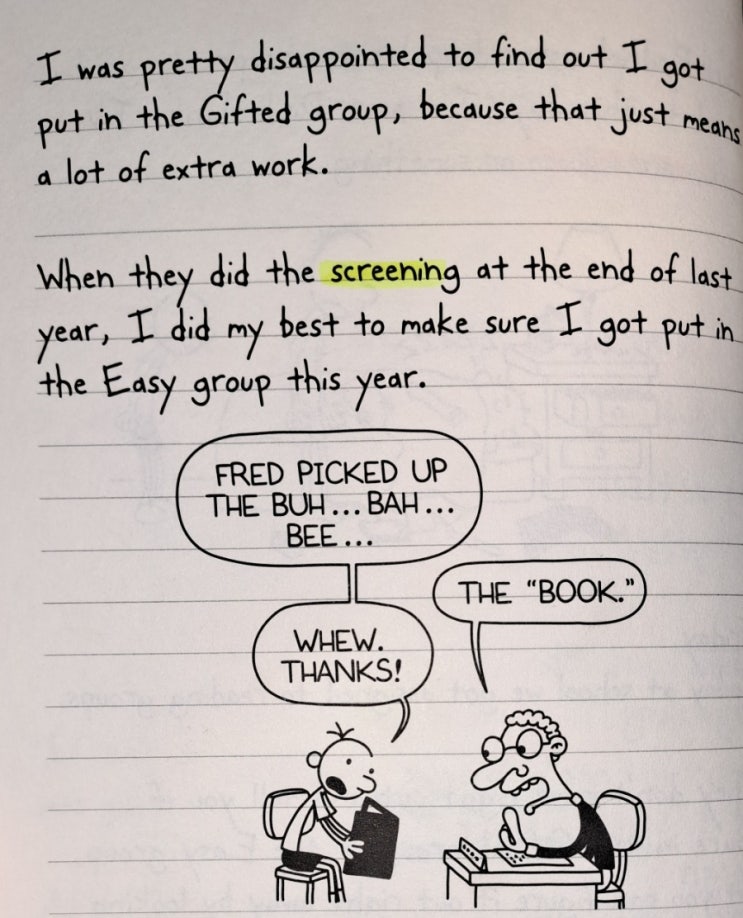 I was pretty disappointed to find out I got
put in the Gifted group, because that just means
a lot of extra work.
When they did the screening at the end of last
year, I did my best to make sure I got put in
the Easy group this year.
FRED PICKED UP
THE BUH... BAH...
BEE...
THE "BOOK."
WHEW.
THANKS!